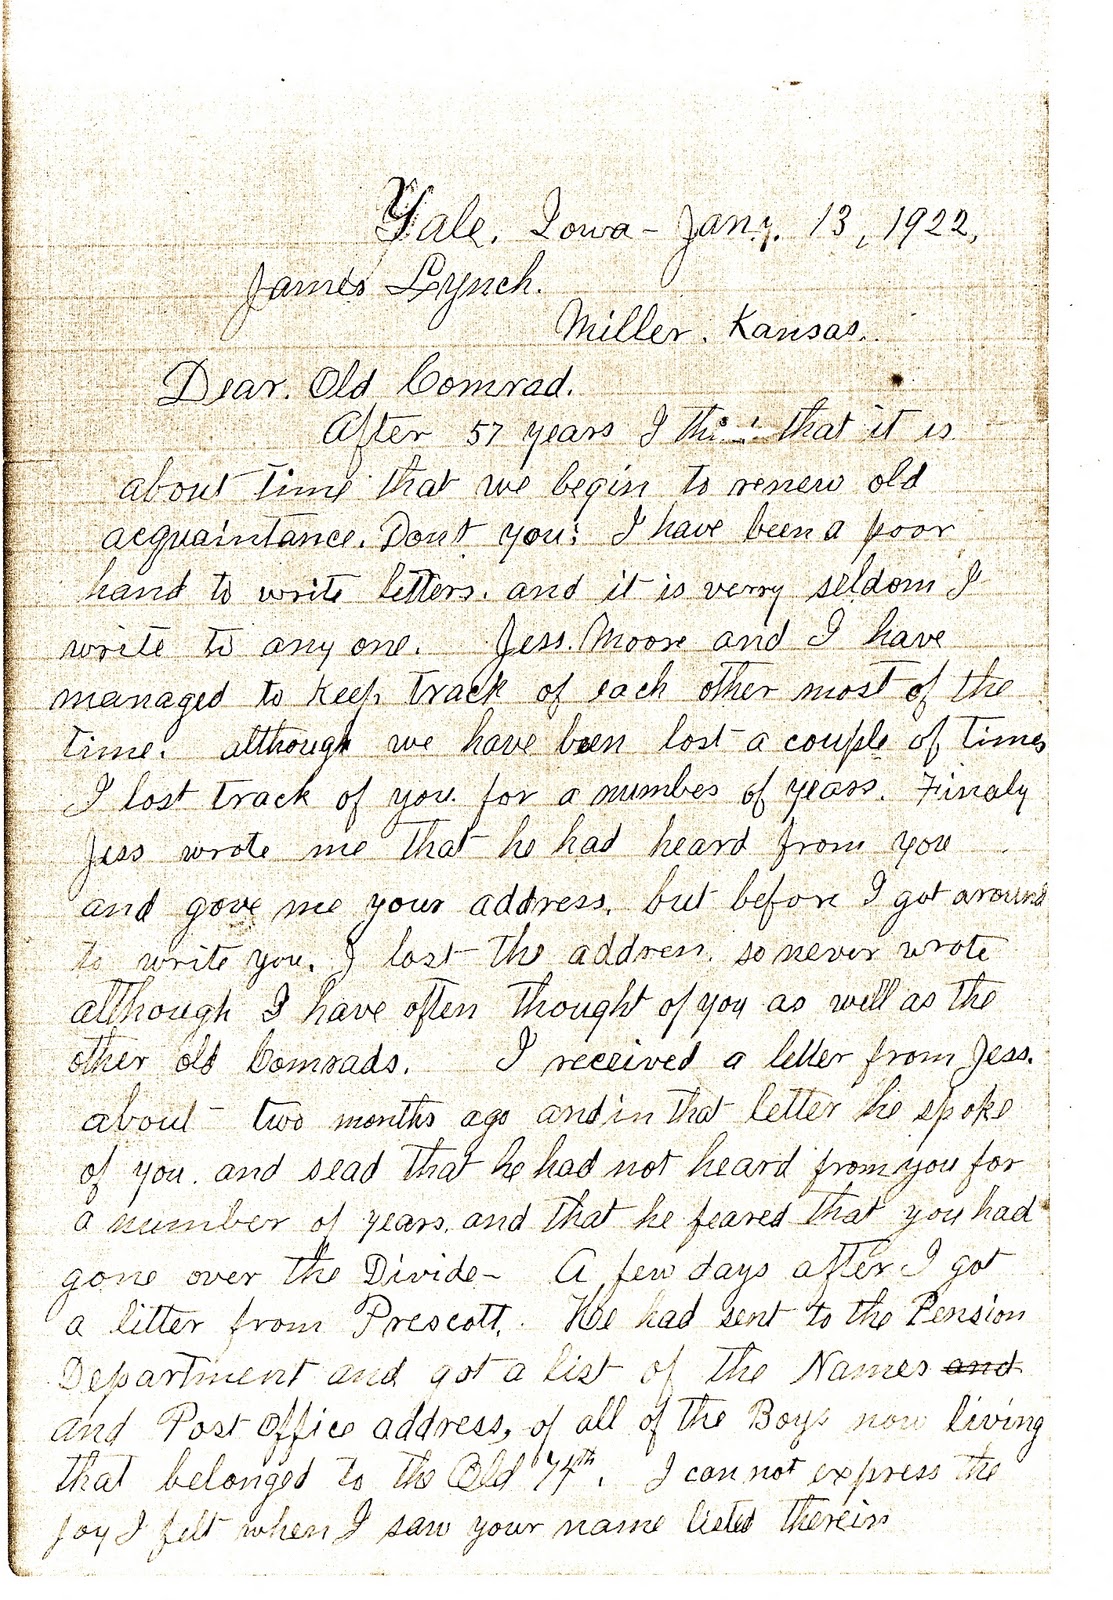 Yale, Iowa - Jany. 13, 1922,
James Lynch.
Miller. Kansas.
Dear. Old Comrad.
After 57 years I that it is
about time that we begin to renew old
acquaintance. Dont you: I have been a poor
hand to write letters. and it is verry seldom I
write to any one. Jess. Moore and I have
managed to keep track of each other most of the
time. although we have been lost a couple of times
I lost track of you for a number of years. Finaly
Jess wrote me that he had heard from you
and gave me your address. but before I got around
to write you. I lost the address. so never wrote
although I have often thought of you as well as the
other old Comrads. I received a letter from Jess.
about two months ago and in that letter he spoke
of you. and sead that he had not heard from you for
a number of years. and that he feared that you had
gone over the Divide - A few days after I got
a litter from Prescott. He had sent to the Pension
Department and got a list of the Names and
and Post Office address, of all of the Boys now living
that belonged to the Old 74th. I can not express the
joy I felt when I saw your name listed therein